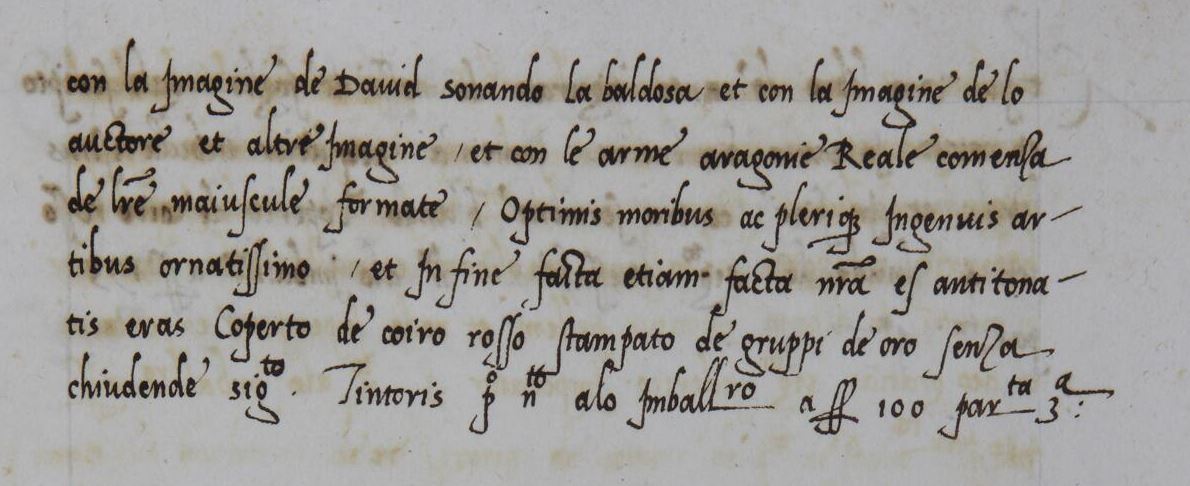 con la Imagine de Dauid sonando la baldosa et con la Imagine de lo
auctore et altre Imagine / et con le arme aragonie Reale comenza
de lr̃e maiuscule formate / Optimis moribus ac pleriqꝫ Ingenuis ar-
tibus ornatissimo / et In fine facta etiam facta nr̃a es antitona-
tis eras Coperto de coiro rosso stampato de gruppi de oro senza
chiudende sig.to Tintoris p.o n.to alo Imball.ro a 100 par.ta 3.a :